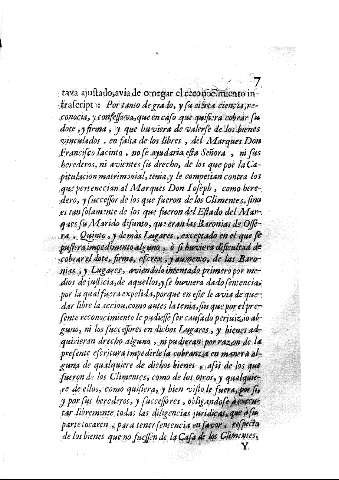 7
tava ajustado, avia de otorgar el reconocimiento in-
trascript: Por tanto de grado, y su cierta ciencia, re-
conocia, y confessava, que en caso que quisiera cobrar su
dote, y firma, y que huviera de valerse de los bienes
vinculados, en falta de los libres, del Marques Don
Francisco Iacinto, no se ayudaria esta Señora, ni sus
herederos, ni avientes su drecho, de los que por la Ca-
pitulacion matrimonial, tenia, y le competian contra los
que pertenecian al Marques Don Ioseph, como here-
dero, y successor de los que fueron de los Climentes, sino
es tan solamente de los que fueron del Estado del Mar-
ques su Marido difunto, que eran las Baronias de Osse-
ra, Quinto, y demàs Lugares, exceptado en el que se
pusiera impedimento alguno, ò si huviera dificultad de
cobrar el dote, firma, escrex, y aumento, de las Baro-
nias, y Lugares, aviendolo intentado primero por me-
dios de justicia, de aquellos, y se huviera dado sentencia,
por la qual fuera expelida, porque en este le avia de que-
dar libre la accion, como antes la tenia, sin que por el pre-
sente reconocimiento le pudiesse ser causado perjuizio al-
guno, ni los successores en dichos Lugares, y bienes ad-
quirieran drecho alguno, ni pudieran por razon de la
presente escritura impedirle la cobranza en manera al-
guna de qualquiere de dichos bienes, assi de los que
fueron de los Climentes, como de los otros, y qualquie-
re de ellos, como quisiera, y bien visto le fuera, por si
y por sus herederos, y successores, obligandose à execu-
tar libremente todas las diligencias juridicas, que à su
parte tocaren, para tener sentencia en favor, respecto
de los bienes que no fuessen de la Casa de los Climentes,
Y.